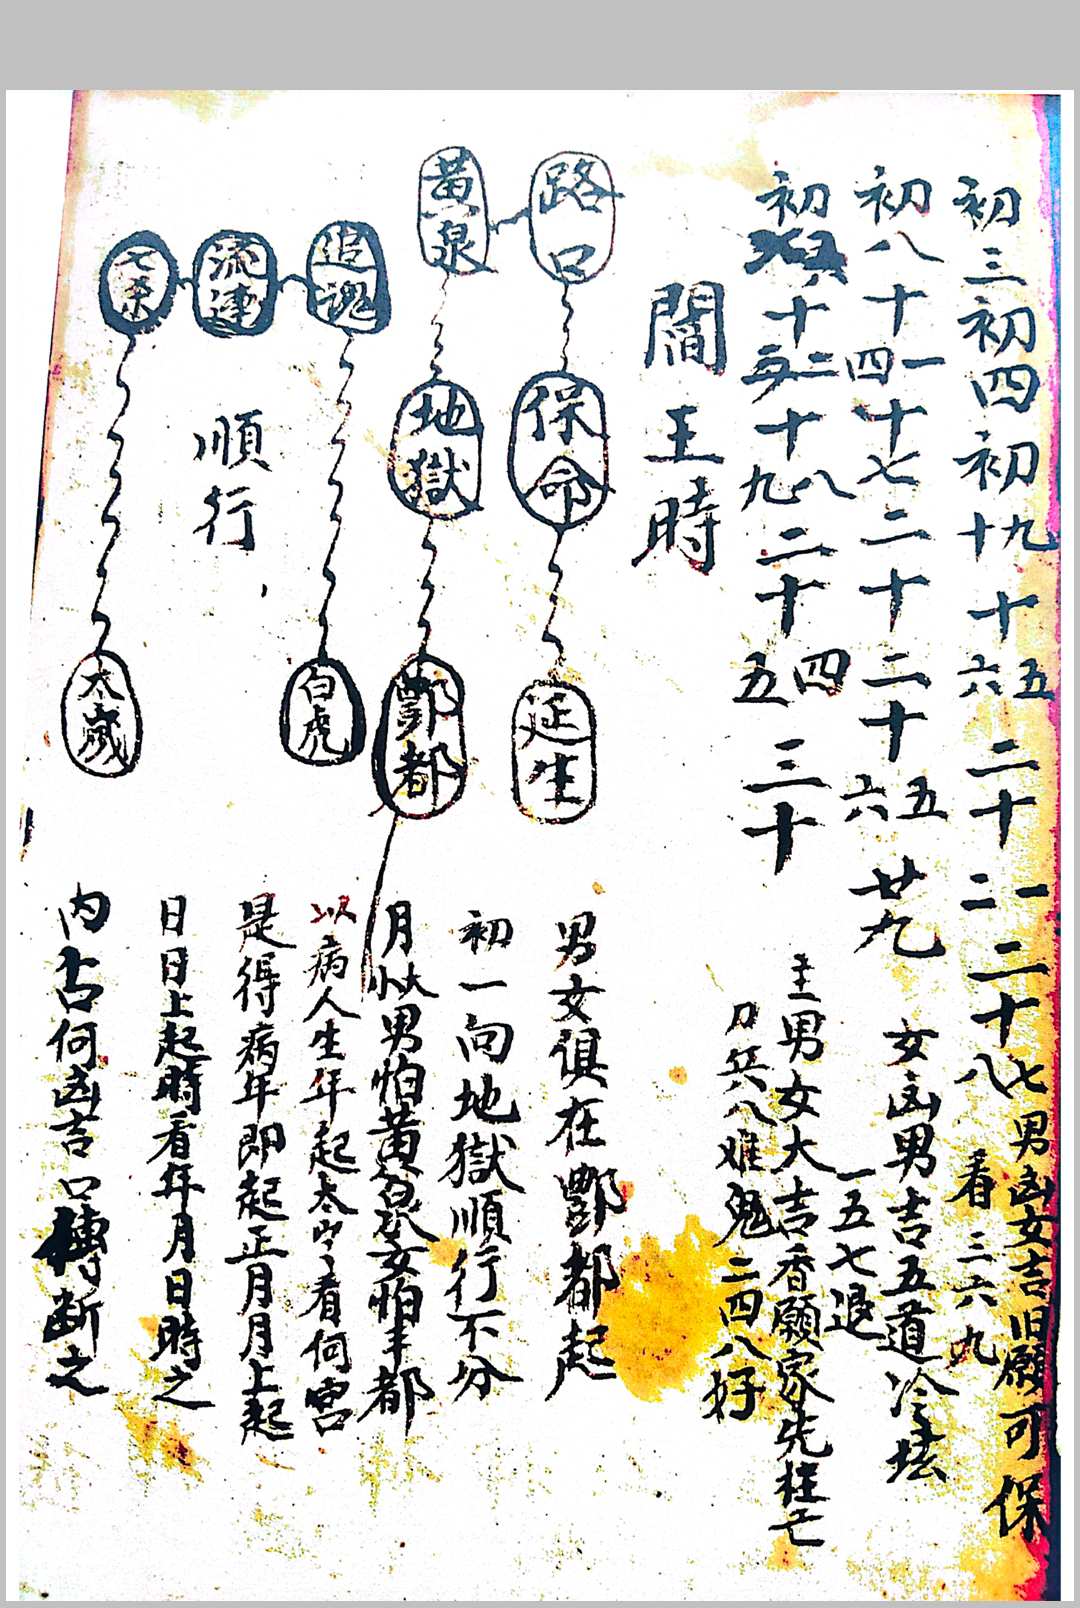 初三初四初九十十五六二十一二二十七八男凶女吉旧願可保
看三六九
初八十一四十七二十二十五六廿九女凶男吉五道冷坛
一五七退
初十二十八九二十四五三十主男女大吉香願家先
刀兵八难鬼二四八好
閻王時
路口
保命
延生
黃泉
地獄
酆都
追魂
白虎
流連
順行
太歲
男女俱在酆都起
初一向地獄順行不分
月大男怕黃泉女怕丰都
以病人生年起太歲看何宮
是得病年即起正月月上起
日日上起時看年月日時之
内占何凶吉断之